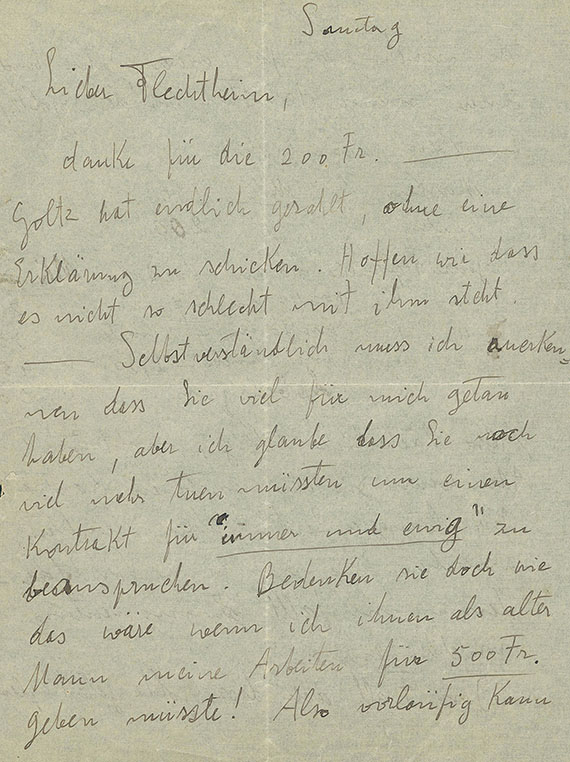 Sonntag
Lieber Flechtheim,
danke für die 200 Fr. ———
Goltz hat endlich gezahlt, ohne eine
Erklärung zu schicken. Hoffen wir dass
es nicht so schlecht mit ihm steht.
—— Selbstverständlich muss ich anerken=
nen dass Sie viel für mich getan
haben, aber ich glaube dass Sie noch
viel mehr tuen müssten um einen
Kontrakt für "immer und ewig" zu
beanspruchen. Bedenken sie doch wie
das wäre wenn ich ihnen als alter
Mann meine Arbeiten für 500 Fr.
geben müsste! Also vorläufig kann